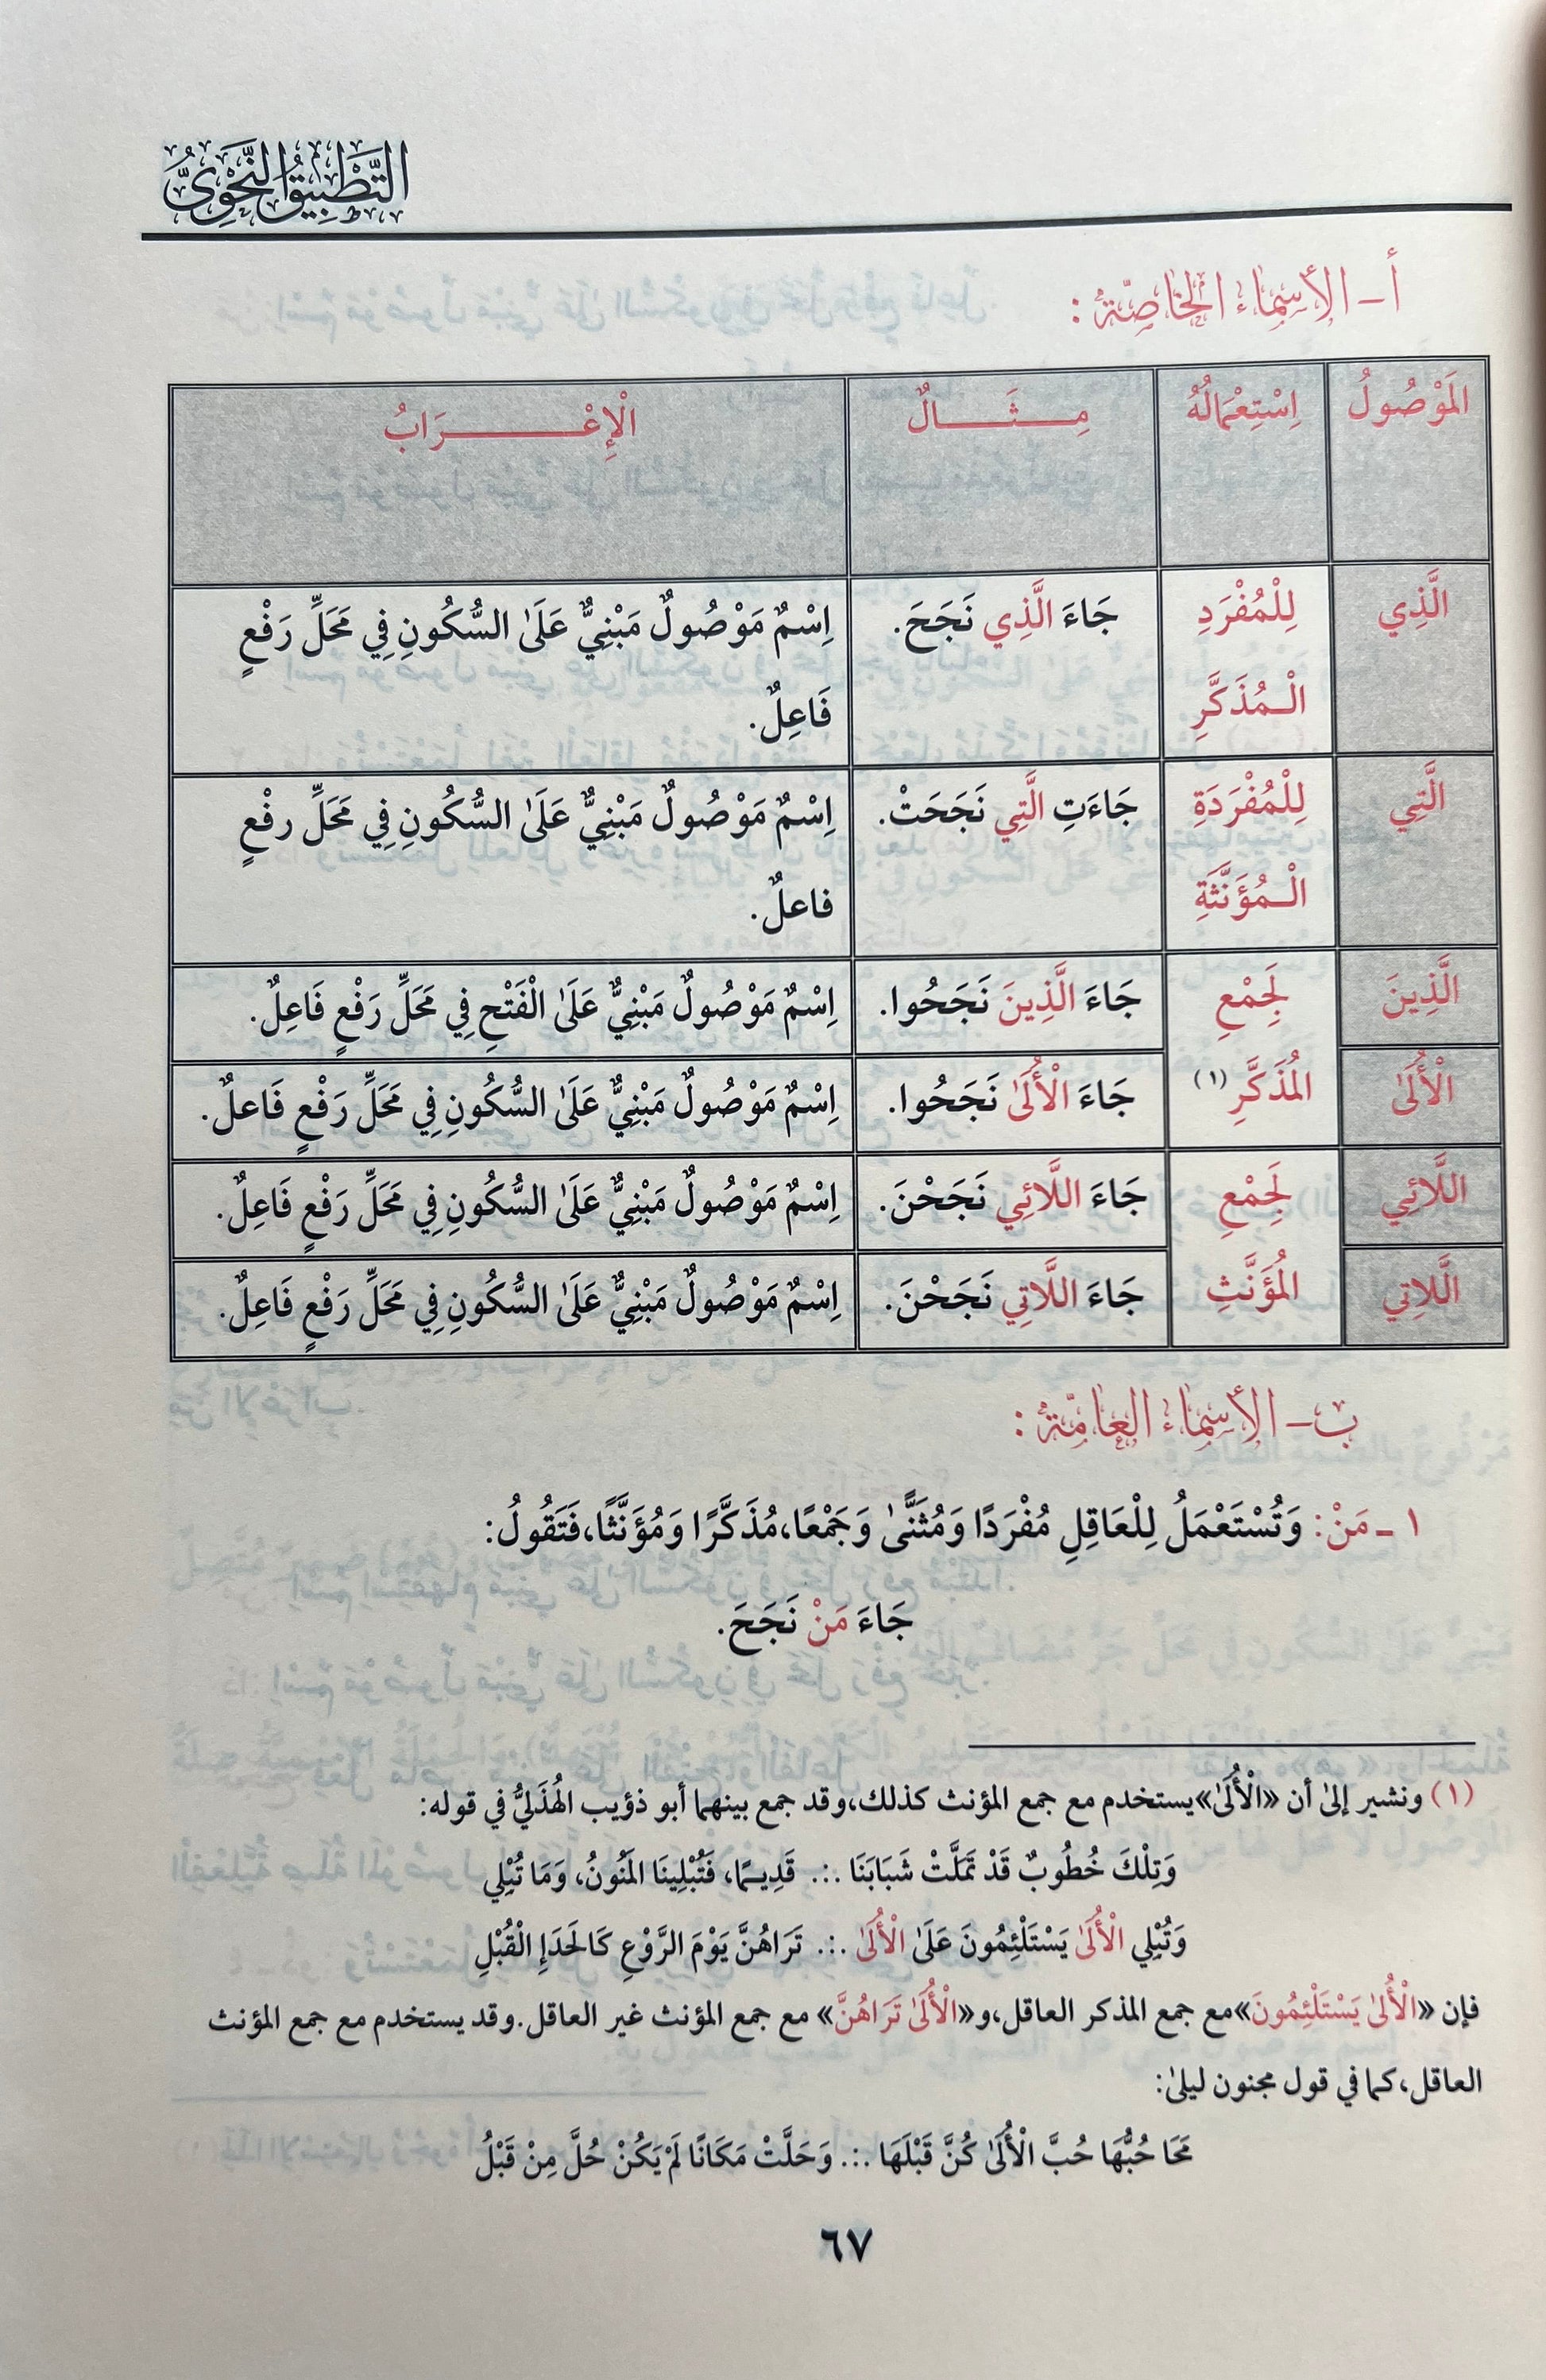 التَّطْبِيقُ النَّحْوِيُّ
أ - الأسماء الخاصّة :
الْمَوْصُولُ اِسْتِعْمَالُهُ مِـثَـالٌ الْإِعْـرَابُ
الَّذِي لِلْمُفْرَدِ جَاءَ الَّذِي نَجَحَ. اِسْمٌ مَوْصُولٌ مَبْنِيٌّ عَلَىٰ السُّكُونِ فِي مَحَلِّ رَفْعٍ
الْـمُذَكَّرِ فَاعِلٌ.
الَّتِي لِلْمُفْرَدَةِ جَاءَتِ الَّتِي نَجَحَتْ. اِسْمٌ مَوْصُولٌ مَبْنِيٌّ عَلَىٰ السُّكُونِ فِي مَحَلِّ رفْعٍ
الْـمُؤَنَّثَةِ فاعلٌ.
الَّذِينَ لِجَمْعِ جَاءَ الَّذِينَ نَجَحُوا. اِسْمٌ مَوْصُولٌ مَبْنِيٌّ عَلَىٰ الْفَتْحِ فِي مَحَلِّ رَفْعٍ فَاعِلٌ.
الْأُلَىٰ المُذَكَّرِ (١) جَاءَ الْأُلَىٰ نَجَحُوا. اِسْمٌ مَوْصُولٌ مَبْنِيٌّ عَلَىٰ السُّكُونِ فِي مَحَلِّ رَفْعٍ فَاعلٌ.
اللَّائِي لِجَمْعِ جَاءَ اللَّائِي نَجَحْنَ. اِسْمٌ مَوْصُولٌ مَبْنِيٌّ عَلَىٰ السُّكُونِ فِي مَحَلِّ رَفْعٍ فَاعِلٌ.
الَّلاتِي المُؤَنَّثِ جَاءَ اللَّاتِي نَجَحْنَ. اِسْمٌ مَوْصُولٌ مَبْنِيٌّ عَلَىٰ السُّكُونِ فِي مَحَلِّ رَفْعٍ فَاعِلٌ.
ب - الأسماء العامّة :
١ - مَنْ: وَتُسْتَعْمَلُ لِلْعَاقِلِ مُفْرَدًا وَمُثَنًّىٰ وَجَمْعًا،مُذَكَّرًا وَمُؤَنَّثًا،فَتَقُولُ:
جَاءَ مَنْ نَجَحَ.
(١) ونشير إلىٰ أن «الْأُلَىٰ»يستخدم مع جمع المؤنث كذلك،وقد جمع بينهما أبو ذؤيب الهُذَليُّ في قوله:
وَتِلْكَ خُطُوبٌ قَدْ تَمَلَّتْ شَبَابَنَا .:. قَدِيـمًا، فَتُبْلِينَا المَنُونُ، وَمَا تُبْلِي
وَتُبْلِي الْأُلَىٰ يَسْتَلْئِمُونَ عَلَىٰ الْأُلَىٰ .:. تَرَاهُنَّ يَوْمَ الرَّوْعِ كَالحَدَإِ الْقُبْلِ
فإن «الْأُلىٰ يَسْتَلْئِمُونَ»مع جمع المذكر العاقل،و«الْأُلَىٰ تَرَاهُنَّ» مع جمع المؤنث غير العاقل.وقد يستخدم مع جمع المؤنث
العاقل،كما في قول مجنون ليلىٰ:
مَحَا حُبُّهَا حُبَّ الْأُلَىٰ كُنَّ قَبْلَهَا .:. وَحَلَّتْ مَكَانًا لَمْ يَكُنْ حُلَّ مِنْ قَبْلُ
٦٧